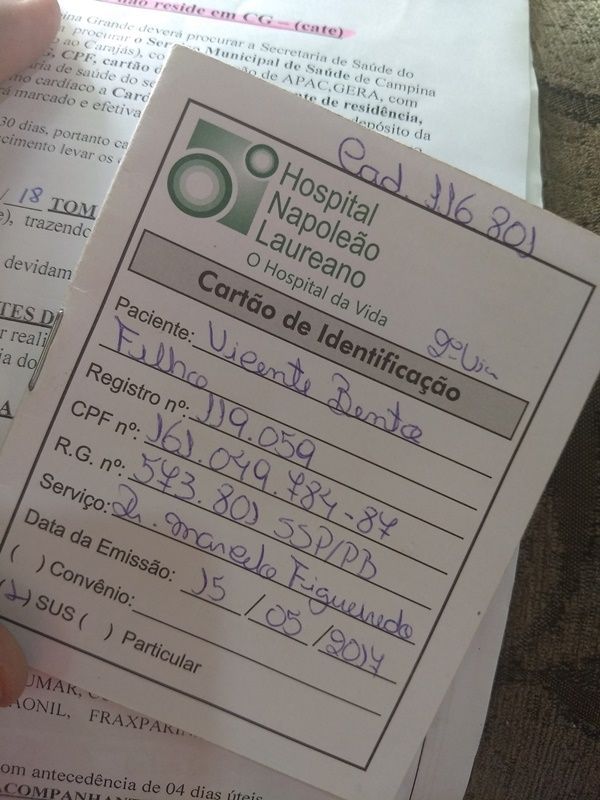 não reside em CG – (cate)
Grande deverá procurar a Secretaria de Saúde do
procurar o Serviço Municipal de Saúde de Campina
ao Carajás),
CPF, cartão de APAC,GERA, com
ria de saúde do
mo cardíaco a de residência,
marcado e efetiva depósito da
30 dias, portanto
cimento levar os
/ 18 TOM
e), trazendo
devidam
TES D
r reali
ia do
Cad. 116 801
Hospital
Napoleão
Laureano
O Hospital da Vida
Cartão de Identificação
2ª Via
Paciente: Vicente Bento
Filho
Registro nº: 119.059
CPF nº: 161.049.784-87
R.G. nº: 573.801 SSP/PB
Serviço: Dr. Marcelo Figueiredo
Data da Emissão: 15 / 05 / 2017
( ) Convênio:
SUS ( ) Particular
UMAR,
AONIL, FRAXPARIN
om antecedência de 04 dias úteis
ACOMPANHAN